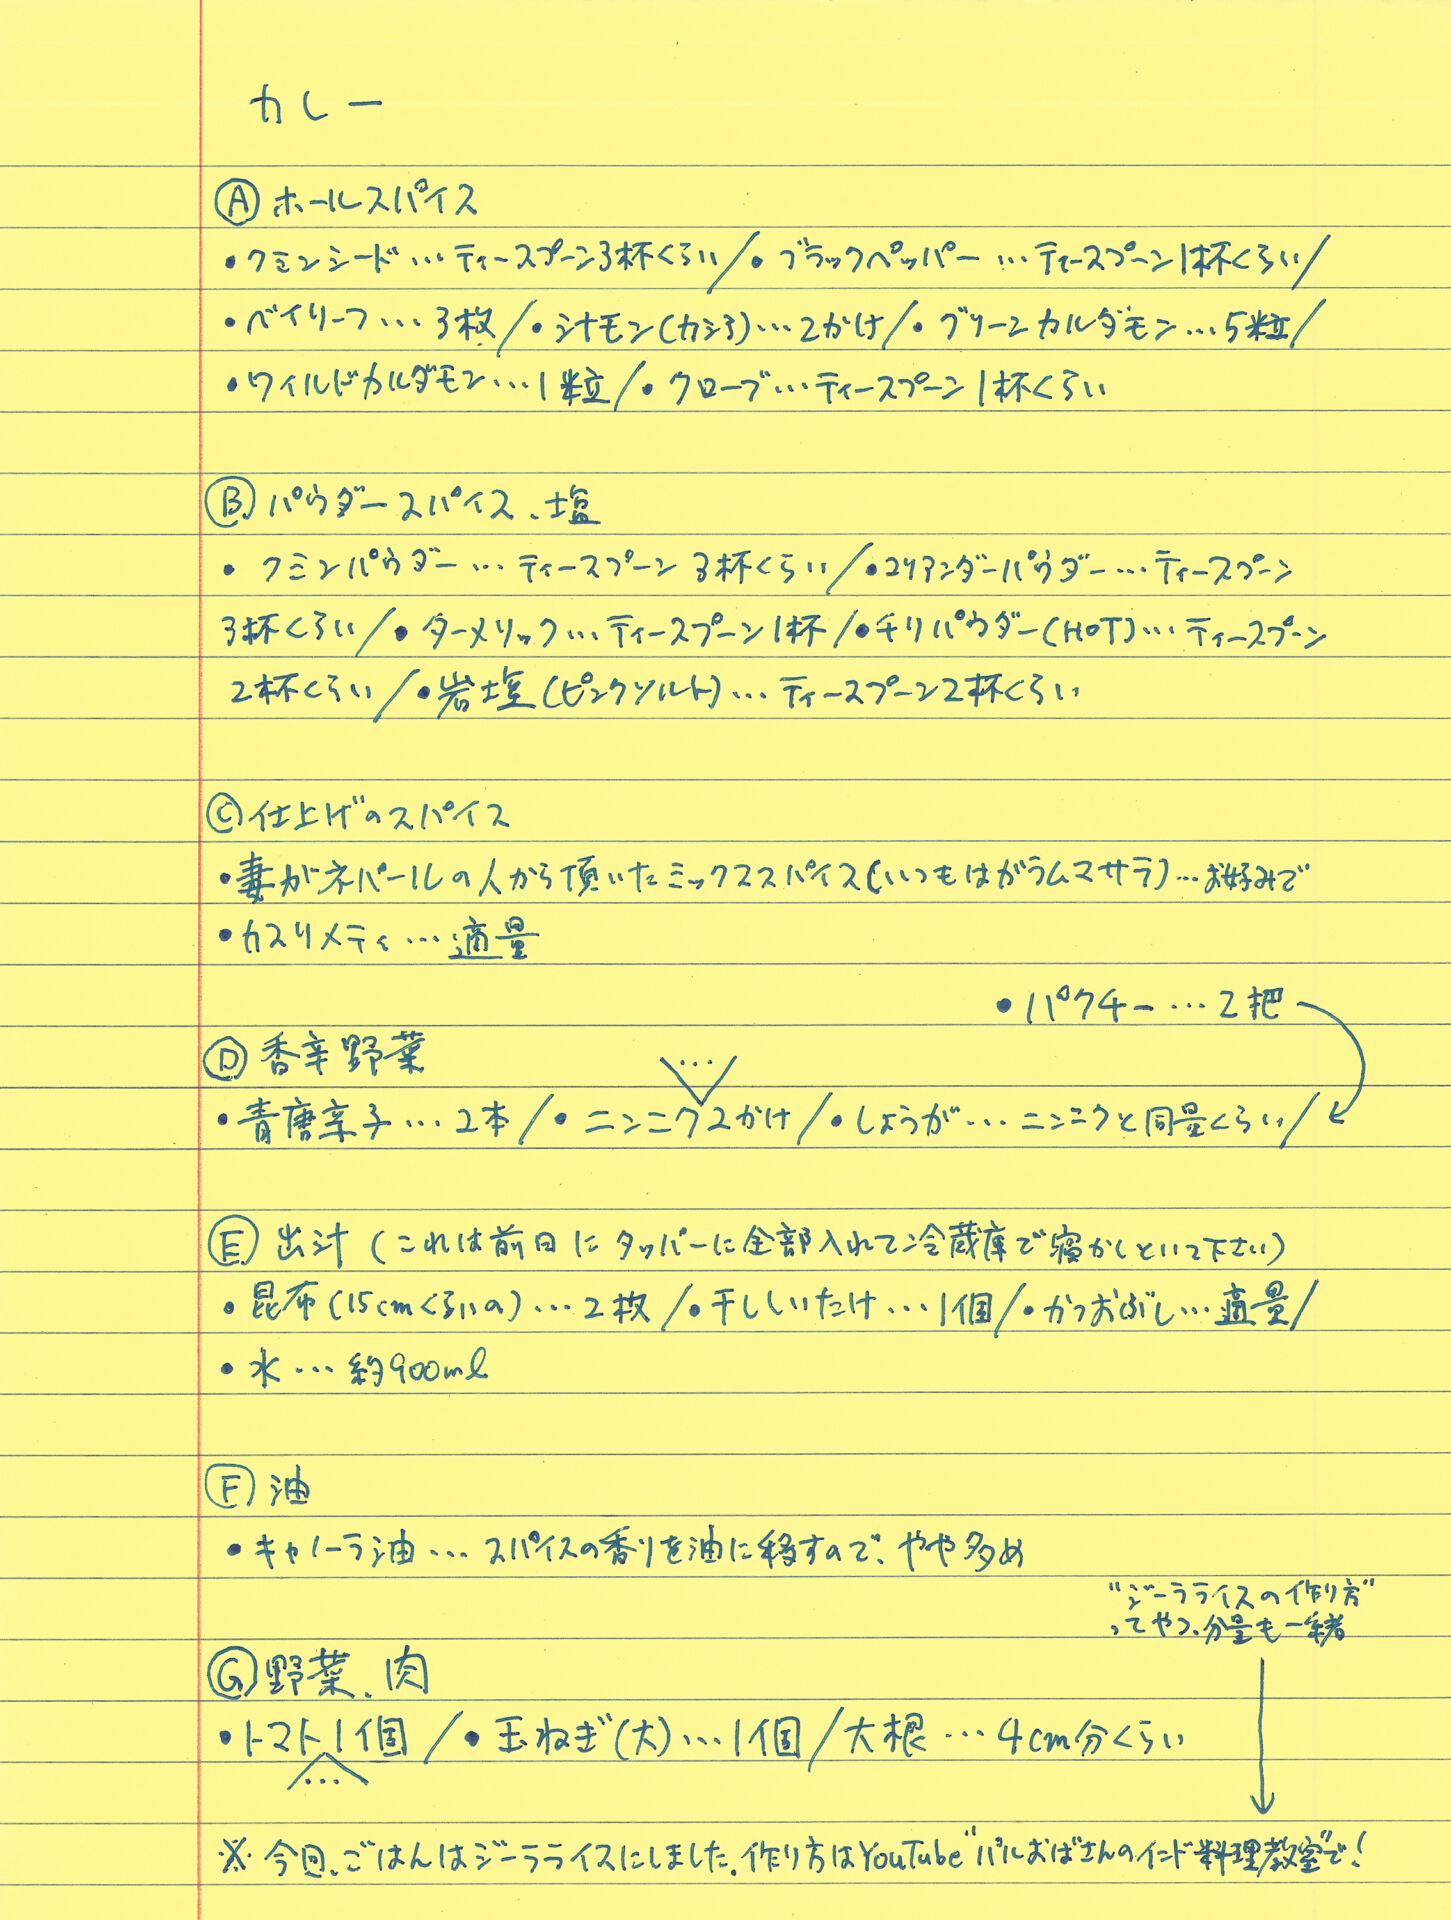 カレー
Ⓐ ホールスパイス
・クミンシード…ティースプーン3杯くらい/・ブラックペッパー…ティースプーン1杯くらい/
・ベイリーフ…3枚/・シナモン(カシア)…2かけ/・グリーンカルダモン…5粒/
・ワイルドカルダモン…1粒/・クローブ…ティースプーン1杯くらい
Ⓑ パウダースパイス、塩
・クミンパウダー…ティースプーン3杯くらい/・コリアンダーパウダー…ティースプーン
3杯くらい/・ターメリック…ティースプーン1杯/・チリパウダー(HOT)…ティースプーン
2杯くらい/・岩塩(ピンクソルト)…ティースプーン2杯くらい
Ⓒ 仕上げのスパイス
・妻がネパールの人から頂いたミックススパイス(いつもはがラムマサラ)…お好みで
・カスリメティ…適量
・パクチー…2把
Ⓓ 香辛野菜
・青唐辛子…2本/・ニンニク…2かけ/・しょうが…ニンニクと同量くらい/
Ⓔ 出汁(これは前日にタッパーに全部入れて冷蔵庫で寝かしといて下さい)
・昆布(15cmくらいの)…2枚/・干ししいたけ…1個/・かつおぶし…適量/
・水…約900ml
Ⓕ 油
・キャノーラ油…スパイスの香りを油に移すので、やや多め
"ジーラライスの作り方"
ってやつ、分量も一緒
Ⓖ 野菜、肉
・トマト…1個/・玉ねぎ(大)…1個/大根…4cm分くらい
※今回、ごはんはジーラライスにしました。作り方はYouTube"パルおばさんのインド料理教室"で!